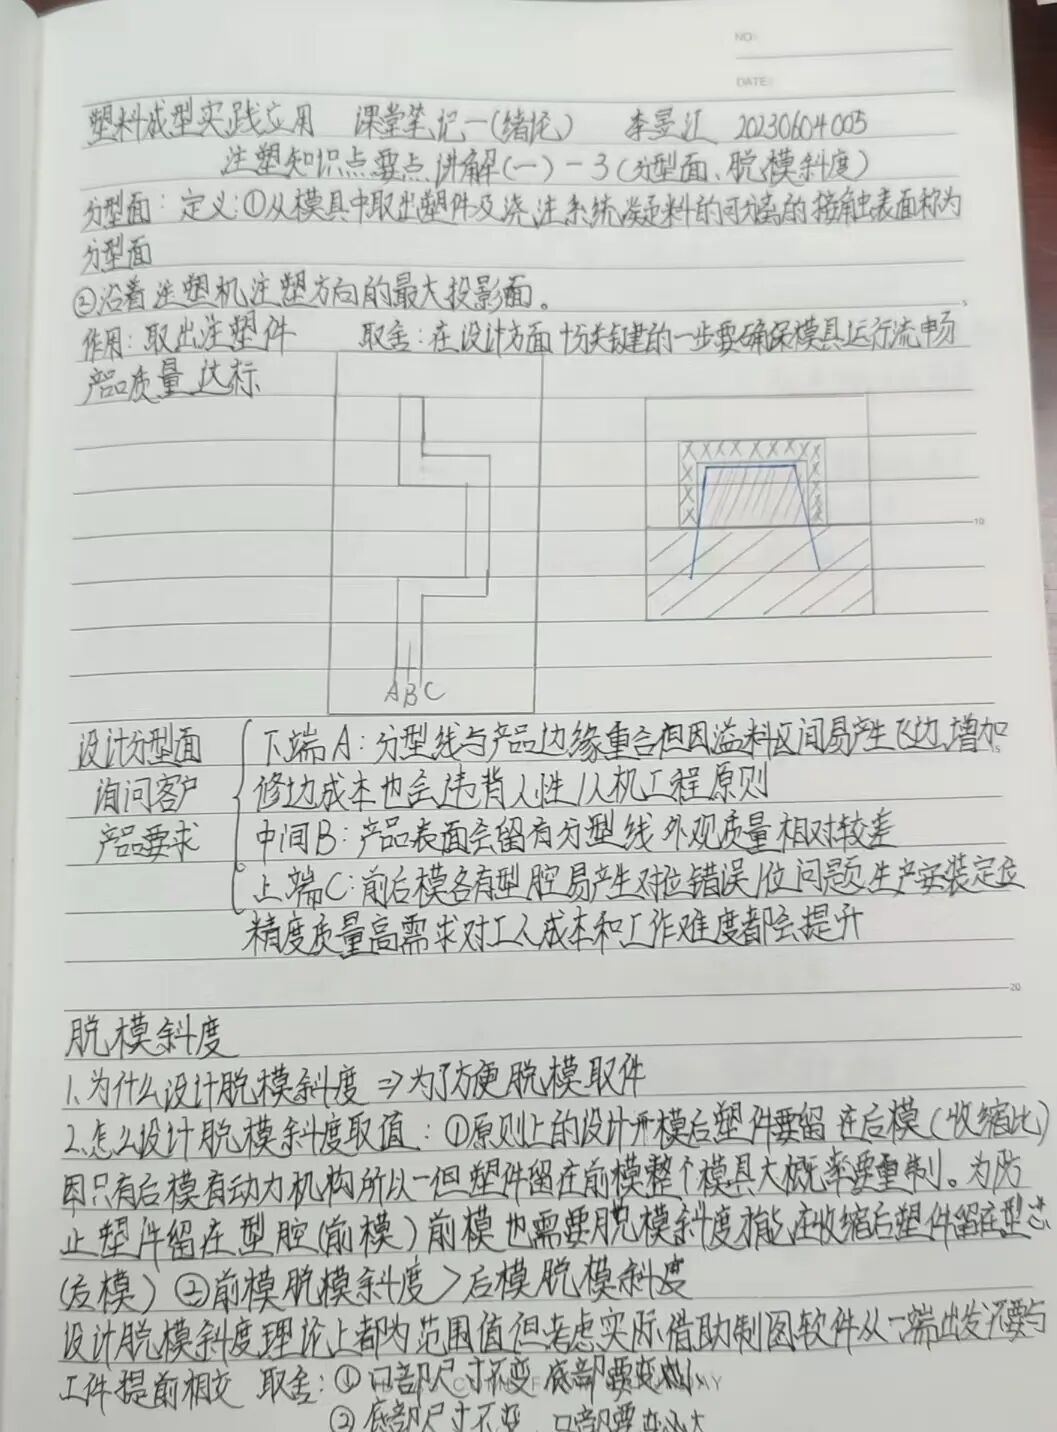 NO:
DATE:
塑料成型实践应用 课堂笔记一(绪论) 李昱江 20230604005
注塑知识点要点讲解(一)-3(分型面、脱模斜度)
分型面：定义:①从模具中取出塑件及浇注系统凝料的可分离的接触表面称为
分型面
②沿着注塑机注塑方向的最大投影面。
5
作用:取出注塑件 取舍:在设计方面十分关键的一步要确保模具运行流畅
产品质量达标
10
A B C
设计分型面 下端A:分型线与产品边缘重合但因溢料区间易产生飞边,增加
询问客户 修边成本也会违背人性/人机工程原则
产品要求 中间B:产品表面会留有分型线 外观质量相对较差
上端C:前后模各有型腔易产生对位错误/位问题,生产安装定位
精度质量高需求对工人成本和工作难度都会提升
20
脱模斜度
1.为什么设计脱模斜度⇒为了方便脱模取件
2.怎么设计脱模斜度取值:①原则上的设计开模后塑件要留在后模(收缩比)
因只有后模有动力机构所以一但塑件留在前模整个模具大概率要重制。为防
止塑件留在型腔(前模)前模也需要脱模斜度才能在收缩后塑件留在型芯
(后模) ②前模脱模斜度>后模脱模斜度
设计脱模斜度理论上都为范围值但考虑实际借助制图软件从一端出发不要与
工件提前相交 取舍:①口部尺寸不变 底部要变小
②底部尺寸不变 口部要变大